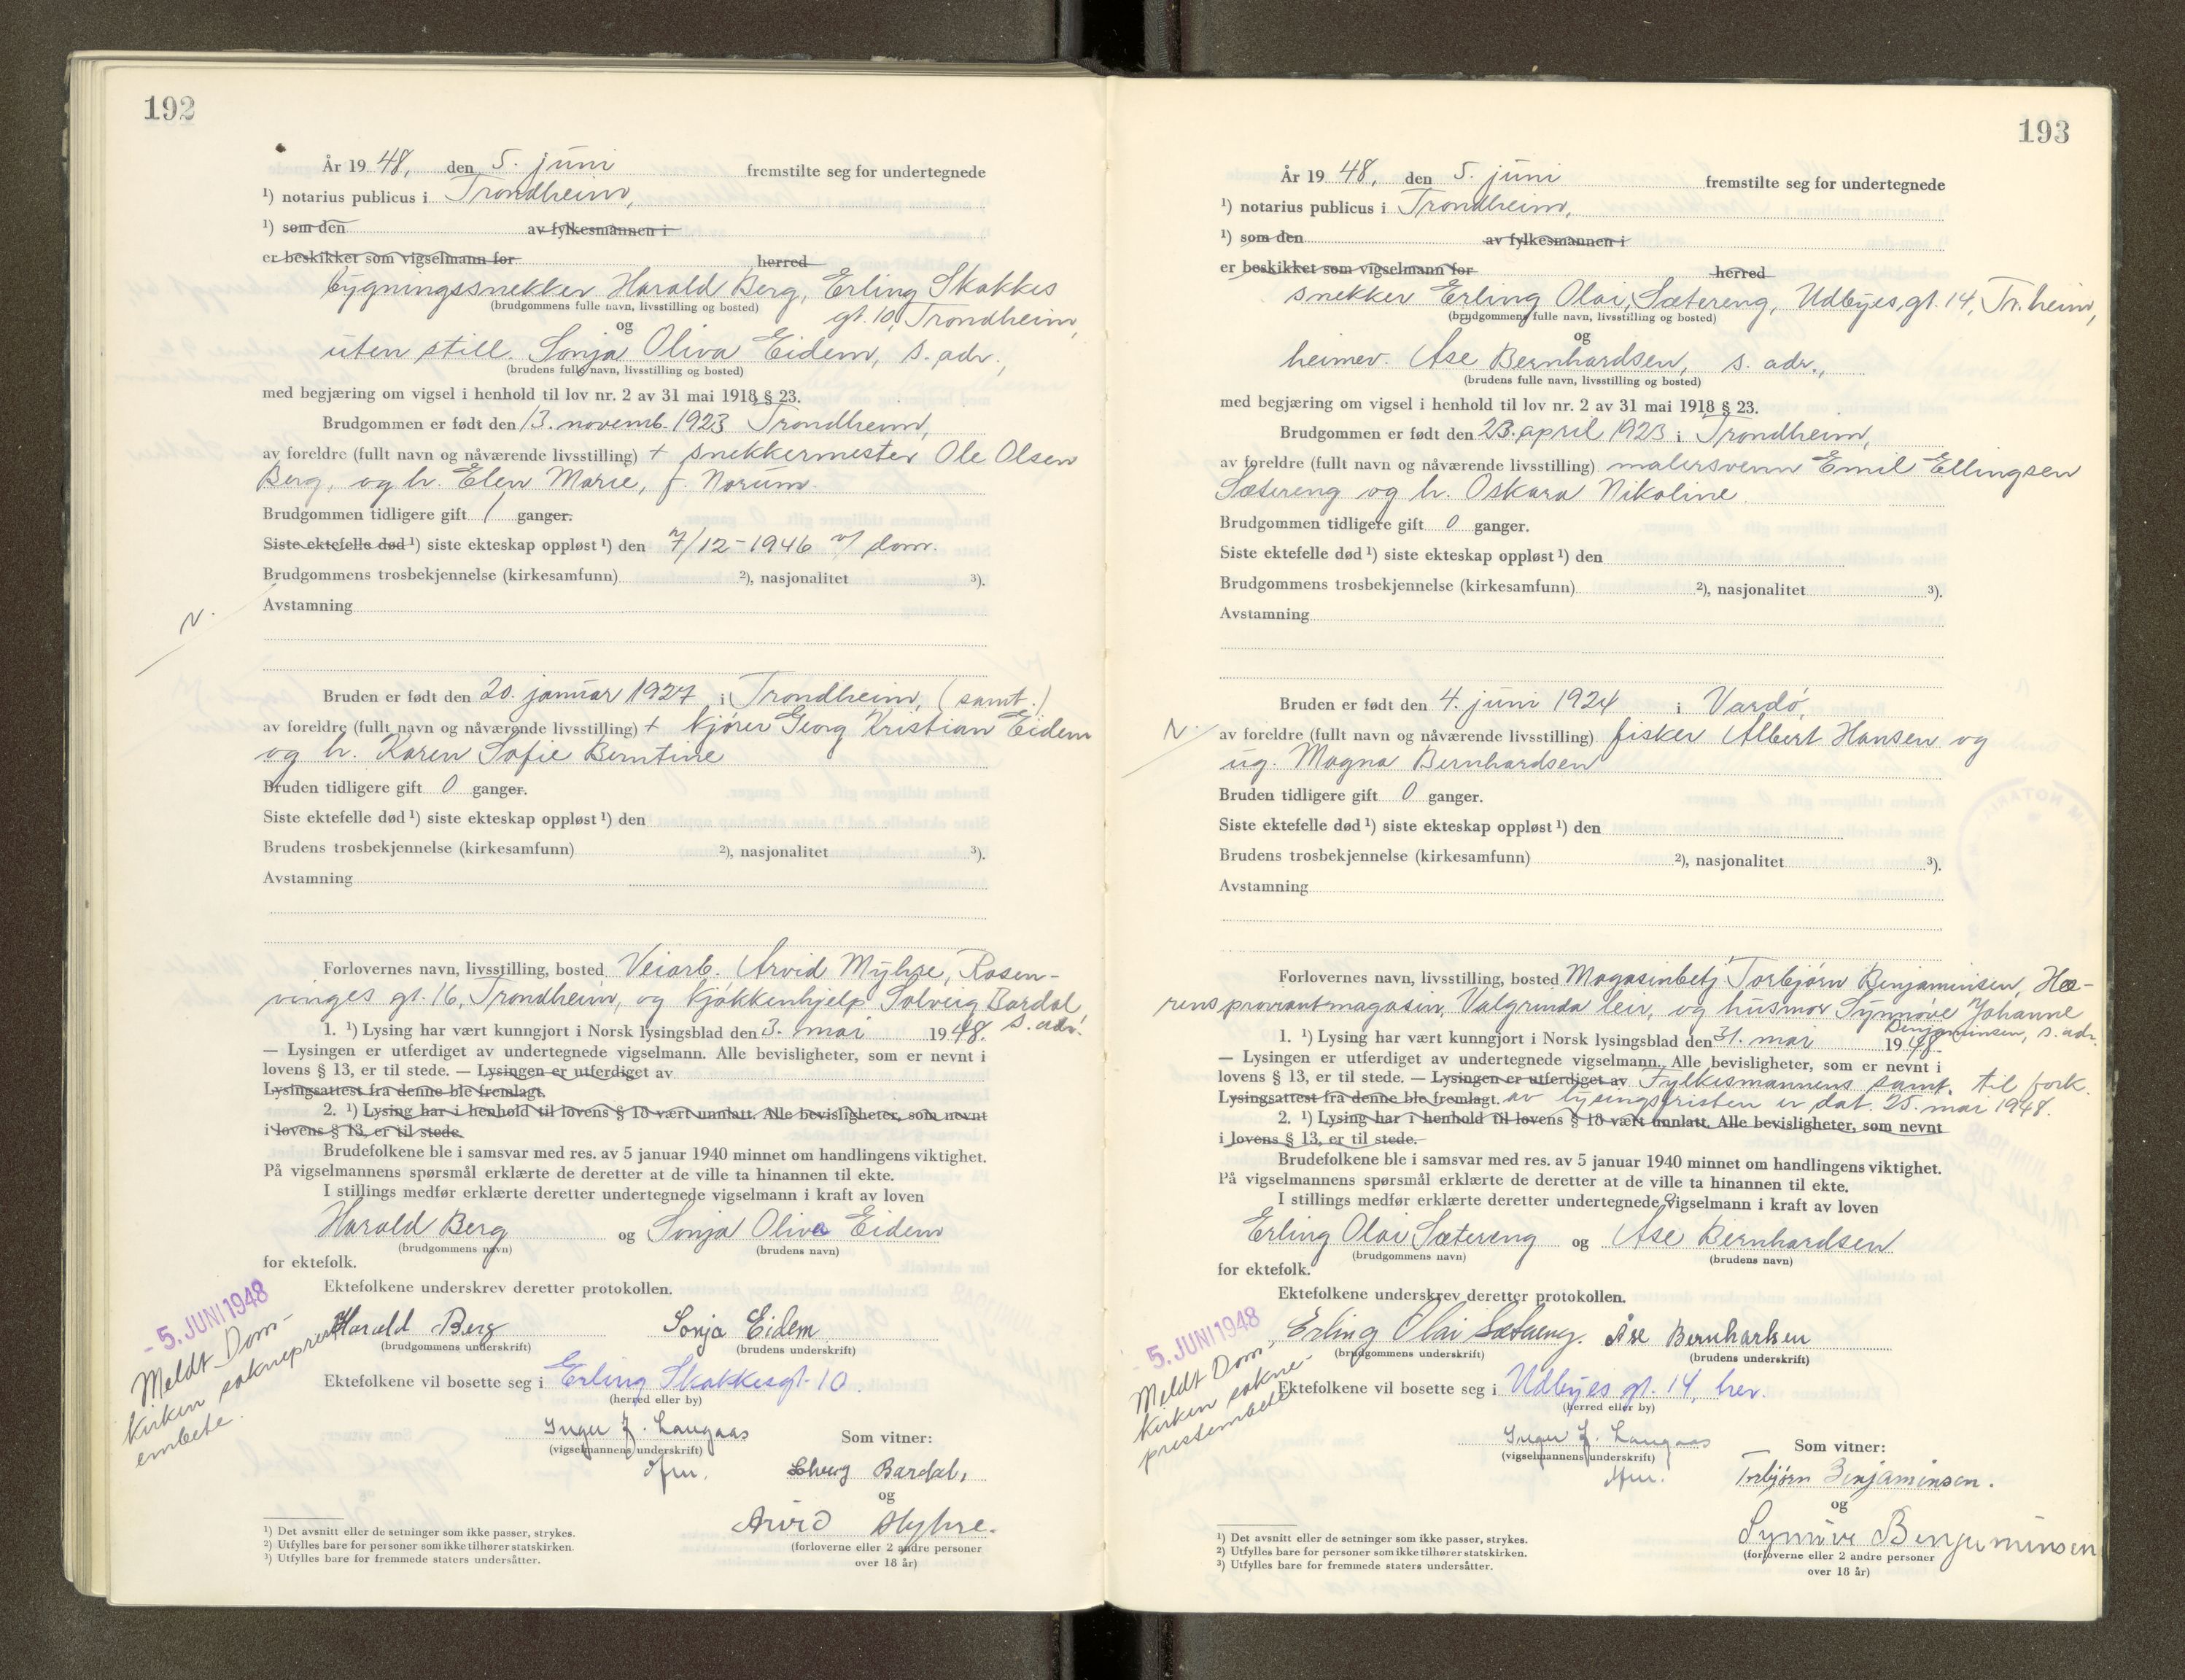 192
År 19 48, den 5. juni fremstilte seg for undertegnede
¹) notarius publicus i Trondheim,
¹) som den av fylkesmannen i
er beskikket som vigselmann for herred
bygningssnekker Harald Berg, Erling Skakkes
(brudgommens fulle navn, livsstilling og bosted) gt. 10, Trondheim,
og
uten still. Sonja Oliva Eidem, s. adr.,
(brudens fulle navn, livsstilling og bosted)
med begjæring om vigsel i henhold til lov nr. 2 av 31 mai 1918 § 23.
Brudgommen er født den 13. novemb. 1923 Trondheim,
av foreldre (fullt navn og nåværende livsstilling) + snekkermester Ole Olsen
Berg, og h. Elen Marie, f. Norum.
Brudgommen tidligere gift 1 ganger.
Siste ektefelle død ¹) siste ekteskap oppløst ¹) den 7/12-1946 v/ dom.
Brudgommens trosbekjennelse (kirkesamfunn) ²), nasjonalitet ³).
Avstamning
N.
Bruden er født den 20. januar 1927 i Trondheim, (samt.)
av foreldre (fullt navn og nåværende livsstilling) + kjører Georg Kristian Eidem
og h. Karen Sofie Berntine
Bruden tidligere gift 0 ganger.
Siste ektefelle død ¹) siste ekteskap oppløst ¹) den
Brudens trosbekjennelse (kirkesamfunn) ²), nasjonalitet ³).
Avstamning
Forlovernes navn, livsstilling, bosted Veiarb. Arvid Myhre, Rosen-
vinges gt. 16, Trondheim, og kjøkkenhjelp Solveig Bardal
s. adr.
1. ¹) Lysing har vært kunngjort i Norsk lysingsblad den 3. mai 1948.
— Lysingen er utferdiget av undertegnede vigselmann. Alle bevisligheter, som er nevnt i
lovens § 13, er til stede. — Lysingen er utferdiget av
Lysingsattest fra denne ble fremlagt.
2. ¹) Lysing har i henhold til lovens § 18 vært unnlatt. Alle bevisligheter, som nevnt
i lovens § 13, er til stede.
Brudefolkene ble i samsvar med res. av 5 januar 1940 minnet om handlingens viktighet.
På vigselmannens spørsmål erklærte de deretter at de ville ta hinannen til ekte.
I stillings medfør erklærte deretter undertegnede vigselmann i kraft av loven
Harald Berg og Sonja Oliva Eidem
(brudgommens navn) (brudens navn)
for ektefolk.
Ektefolkene underskrev deretter protokollen.
- 5. JUNI 1948
Meldt Dom-
kirken sokneprest
embete.
Harald Berg Sonja Eidem
(brudgommens underskrift) (brudens underskrift)
Ektefolkene vil bosette seg i Erling Skakkesgt. 10.
(herred eller by)
Inger J. Langaas
(vigselmannens underskrift)
Som vitner:
Solveig Bardal,
og
Arvid Myhre.
(forloverne eller 2 andre personer
over 18 år)
¹) Det avsnitt eller de setninger som ikke passer, strykes.
²) Utfylles bare for personer som ikke tilhører statskirken.
³) Utfylles bare for fremmede staters undersåtter.
193
År 19 48, den 5. juni fremstilte seg for undertegnede
¹) notarius publicus i Trondheim,
¹) som den av fylkesmannen i
er beskikket som vigselmann for herred
snekker Erling Olai Sætereng, Udbyes gt. 14, Tr.heim,
(brudgommens fulle navn, livsstilling og bosted)
og
heimev. Åse Bernhardsen, s. adr.,
(brudens fulle navn, livsstilling og bosted)
med begjæring om vigsel i henhold til lov nr. 2 av 31 mai 1918 § 23.
Brudgommen er født den 23. april 1923 i Trondheim,
av foreldre (fullt navn og nåværende livsstilling) malersvenn Emil Ellingsen
Sætereng og h. Oskara Nikoline
Brudgommen tidligere gift 0 ganger.
Siste ektefelle død ¹) siste ekteskap oppløst ¹) den
Brudgommens trosbekjennelse (kirkesamfunn) ²), nasjonalitet ³).
Avstamning
Bruden er født den 4. juni 1924 i Vardø,
N.
av foreldre (fullt navn og nåværende livsstilling) fisker Albert Hansen og
ug. Magna Bernhardsen
Bruden tidligere gift 0 ganger.
Siste ektefelle død ¹) siste ekteskap oppløst ¹) den
Brudens trosbekjennelse (kirkesamfunn) ²), nasjonalitet ³).
Avstamning
Forlovernes navn, livsstilling, bosted Magasinbetj. Torbjørn Benjaminsen, Hæ-
rens proviantmagasin, Valgrinda leir, og husmor Synnøve Johanne
Benjaminsen, s. adr.
1. ¹) Lysing har vært kunngjort i Norsk lysingsblad den 31. mai 1948.
— Lysingen er utferdiget av undertegnede vigselmann. Alle bevisligheter, som er nevnt i
lovens § 13, er til stede. — Lysingen er utferdiget av Fylkesmannens samt. til fork.
Lysingsattest fra denne ble fremlagt. av lysingsfristen er dat. 25. mai 1948.
2. ¹) Lysing har i henhold til lovens § 18 vært unnlatt. Alle bevisligheter, som nevnt
i lovens § 13, er til stede.
Brudefolkene ble i samsvar med res. av 5 januar 1940 minnet om handlingens viktighet.
På vigselmannens spørsmål erklærte de deretter at de ville ta hinannen til ekte.
I stillings medfør erklærte deretter undertegnede vigselmann i kraft av loven
Erling Olai Sætereng og Åse Bernhardsen
(brudgommens navn) (brudens navn)
for ektefolk.
Ektefolkene underskrev deretter protokollen.
- 5. JUNI 1948
Meldt Dom-
kirken sokne-
prestembete
Erling Olai Sætereng. Åse Bernhardsen
(brudgommens underskrift) (brudens underskrift)
Ektefolkene vil bosette seg i Udbyes gt. 14, her.
(herred eller by)
Inger J. Langaas
(vigselmannens underskrift)
Som vitner:
Torbjørn Benjaminsen.
og
Synnøve Benjaminsen
(forloverne eller 2 andre personer
over 18 år)
¹) Det avsnitt eller de setninger som ikke passer, strykes.
²) Utfylles bare for personer som ikke tilhører statskirken.
³) Utfylles bare for fremmede staters undersåtter.